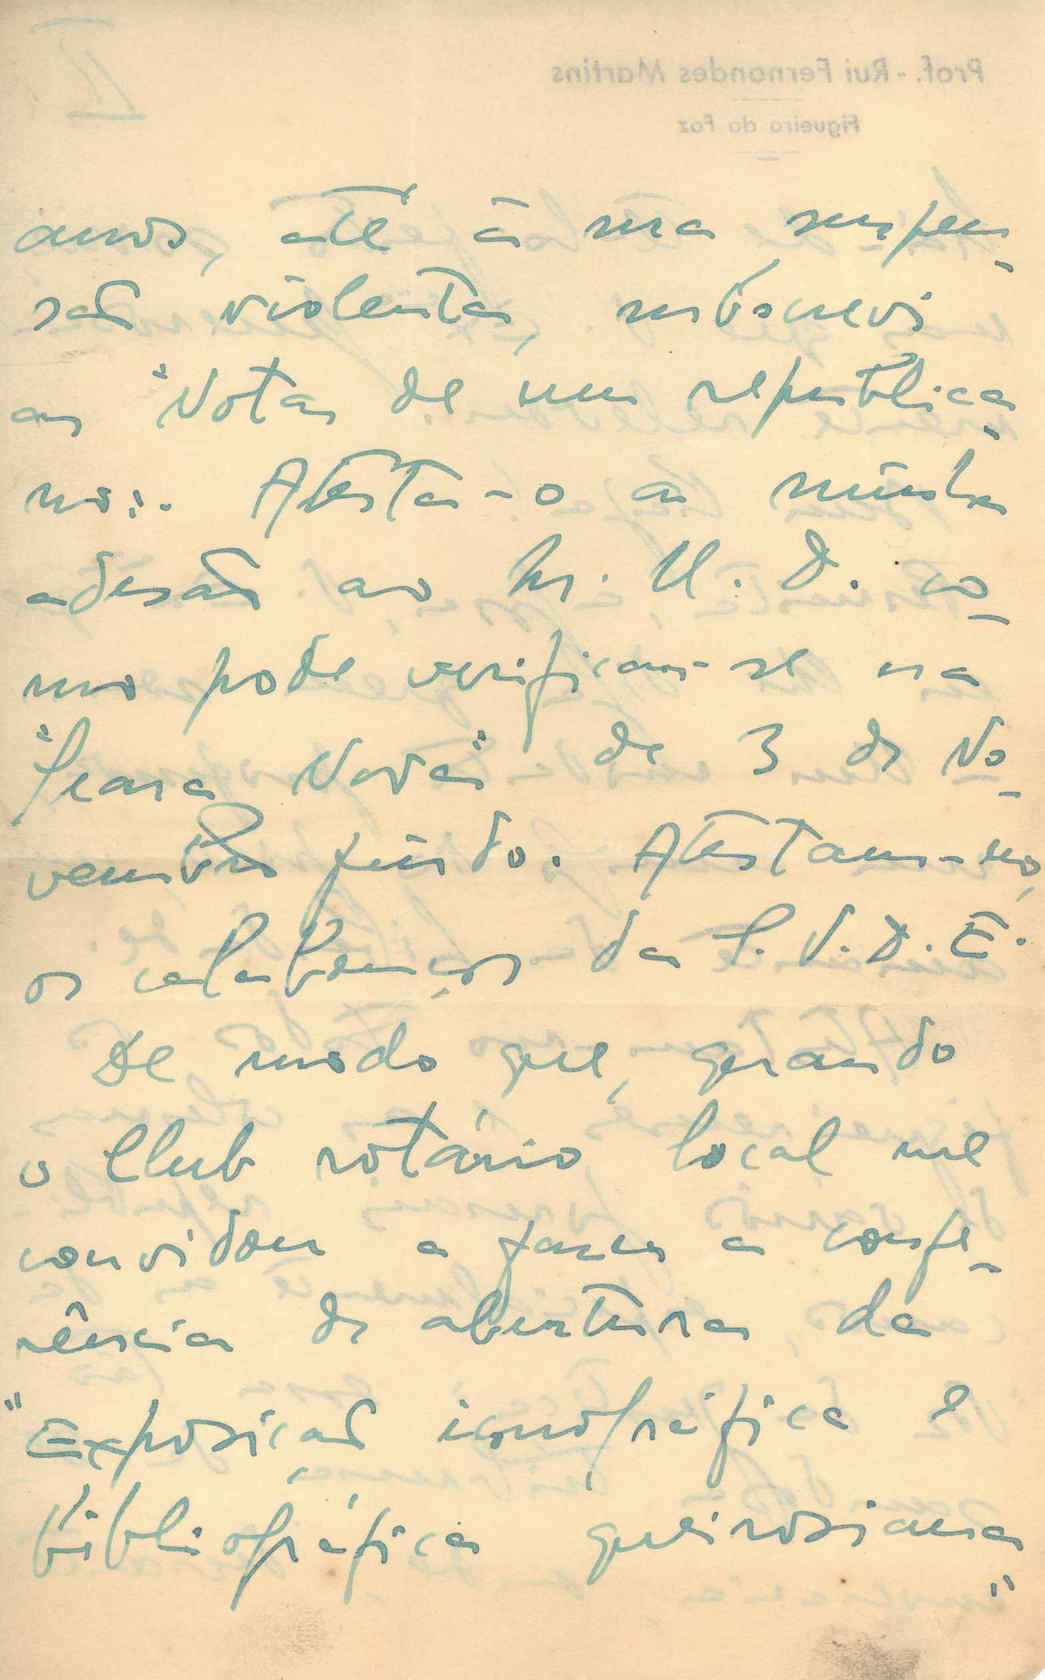 anos, até à sua suspen-
são violenta, subscrevi
as "Notas de um republica-
no". Atesta-o a minha
adesão ao M. U. D. co-
mo pode verificar-se na
"Seara Nova" de 3 de No-
vembro findo. Atestam-no,
os calabouços da P. V. D. E.
De modo que, quando
o Club rotário local me
convidou a fazer a confe-
rência de abertura da
"Exposição iconográfica e
bibliográfica queirosiana"
Prof. - Rui Fernandes Martins
Figueira da Foz
II